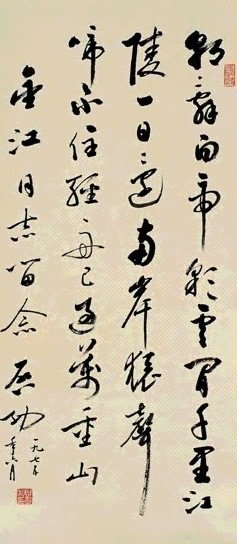 朝辭白帝彩雲間千里江
陵一日還兩岸猿聲
啼不住輕舟已過萬重山
金江同志留念 启功
一九七